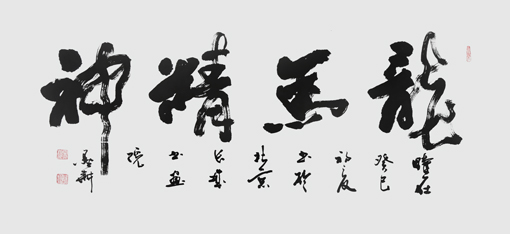 龍馬精神
時在癸巳初夏書於北京書畫院